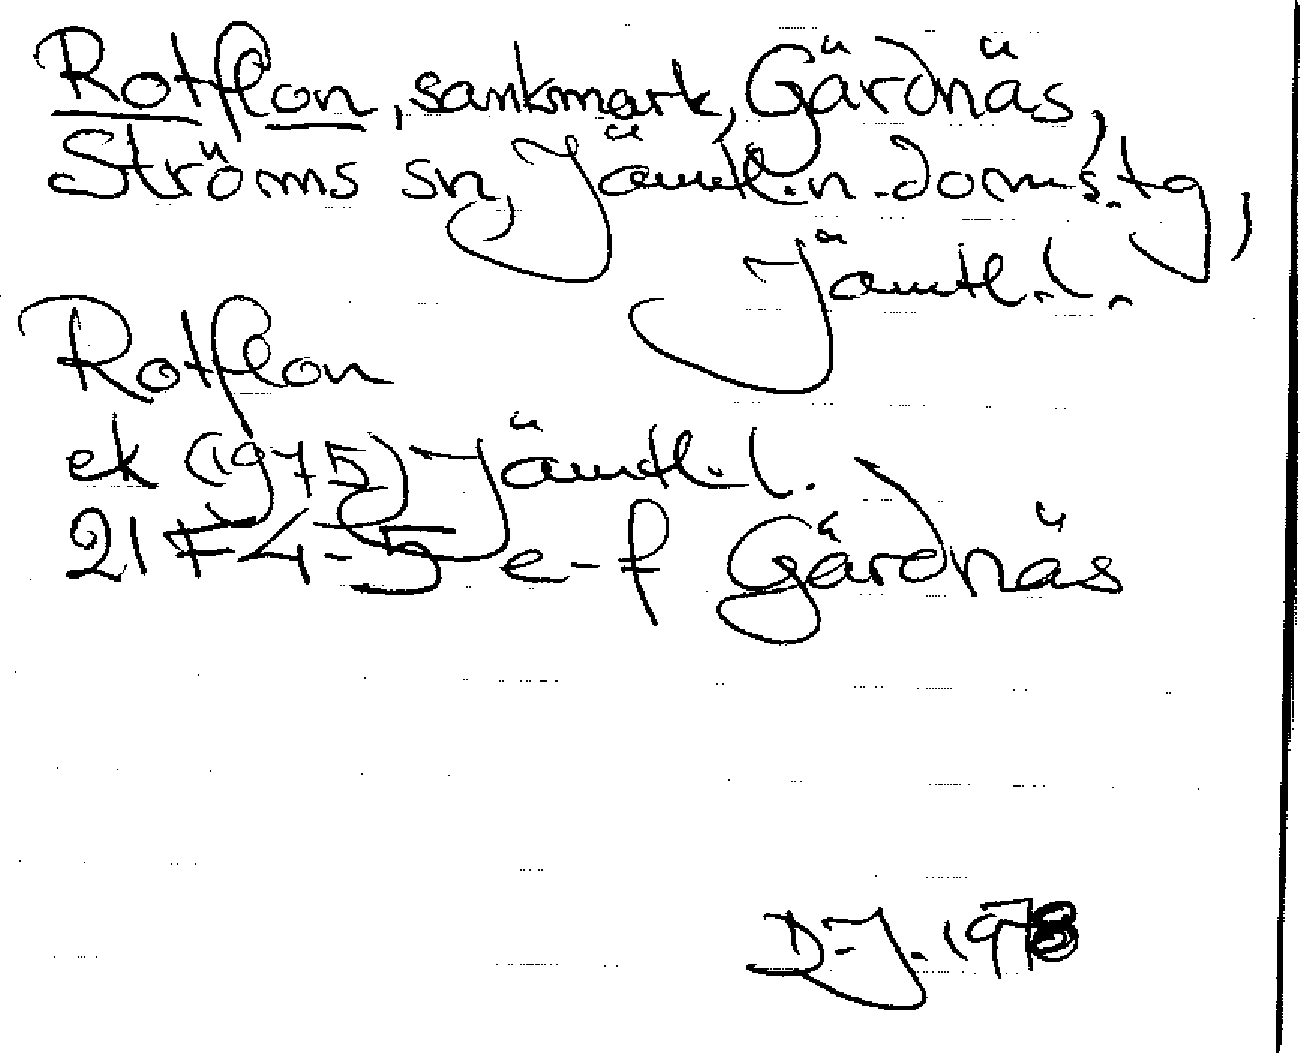 Rotflon, sankmark, Gärdnäs,
Ströms sn, Jämtl.n.doms.tg,
Jämtl.l.
Rotflon
ek (1975) Jämtl.l.
21F4-5 e-f Gärdnäs
D.J. 1978